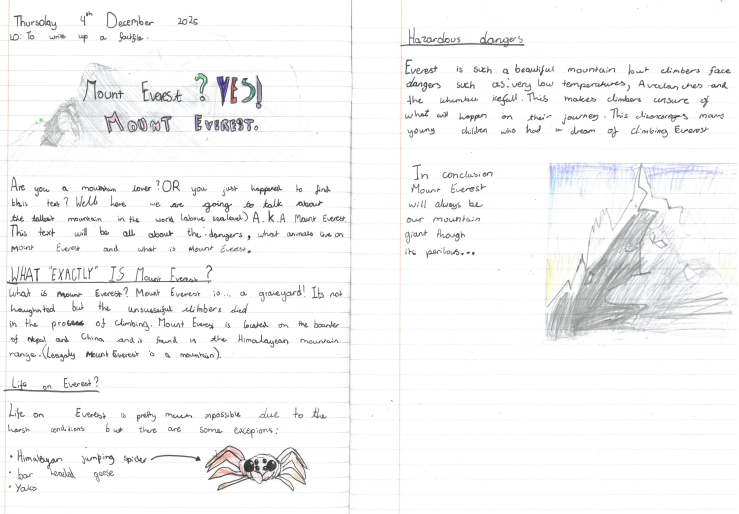 Thursday 4th December 2025
LO: To write up a factfile.
Mount Everest? YES!
MOUNT EVEREST.
Are you a mountain lover? OR you just happened to find
this text? Well here we are going to talk about
the tallest mountain in the world (above sealevel) A.k.A Mount Everest.
This text will be all about the dangers, what animals live on
Mount Everest and what is Mount Everest.
WHAT "EXACTLY" IS Mount Everest?
What is Mount Everest? Mount Everest is... a graveyard! It's not
but the climbers died
in the process of climbing. Mount Everes is located on the bounder
of Nepal and China and is found in the Himalayan mountain
range. (Legally Mount Everest is a mountain).
Life on Everest?
Life on Everest is pretty much impossible due to the
harsh conditions but there are some excepions:
• Himalayan jumping spider
• bar headed goose
• Yaks
Hazardous dangers
Everest is such a beautiful mountain but climbers face
dangers such as: very low temperatures, Avalanches and
the khumbu icefall. This makes climbers unsure of
what will happen on their journey. This discourages many
young children who had a dream of climbing Everest
In conclusion
Mount Everest
will always be
our mountain
giant though
its perilous...